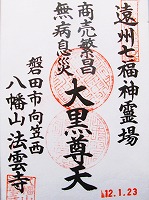 遠州七福神霊場
商売繁昌
無病息災
大黒尊天
磐田市向笠西
八幡山法雲寺
12.1.23